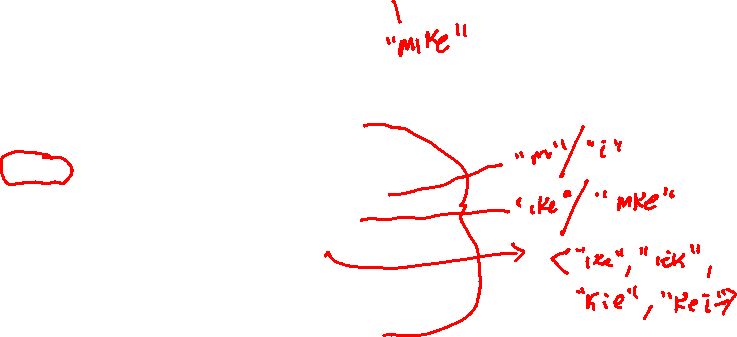 "mike"
"m"/"i"
"ike"/"mke"
<"ike", "iek",
"kie", "kei">